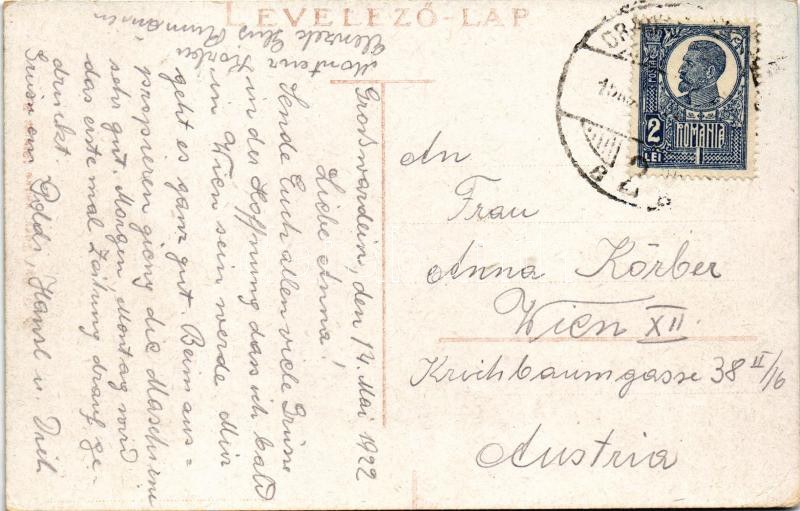 LEVELEZŐ-LAP
Großwardein, den 14. Mai 1922
Liebe Anna!
Sende Euch allen viele Grüsse
in der Hoffnung dass ich bald
in Wien sein werde. Mir
geht es ganz gut. Beim aus-
propieren gieng die Maschine
sehr gut. Morgen, Montag wird
das erste mal Zeitung drauf ge-
druckt.
Gruss an Poldi, Hansl u.
Monteur
Körber
An
Frau
Anna Körber
Wien XII
Krichbaumgasse 38 II/16
Austria
POSTA
2
LEI
ROMANIA
1